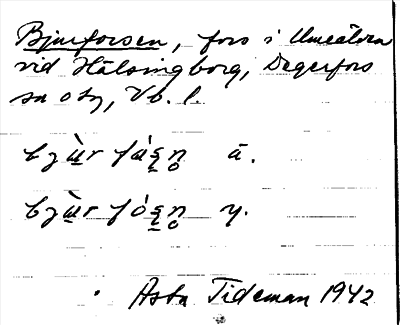 Bjurforsen, fors i Umeälven
vid Hälsingborg, Degerfors
sn o hg, Vb. l.
ä.
y.
Asta Tideman 1942